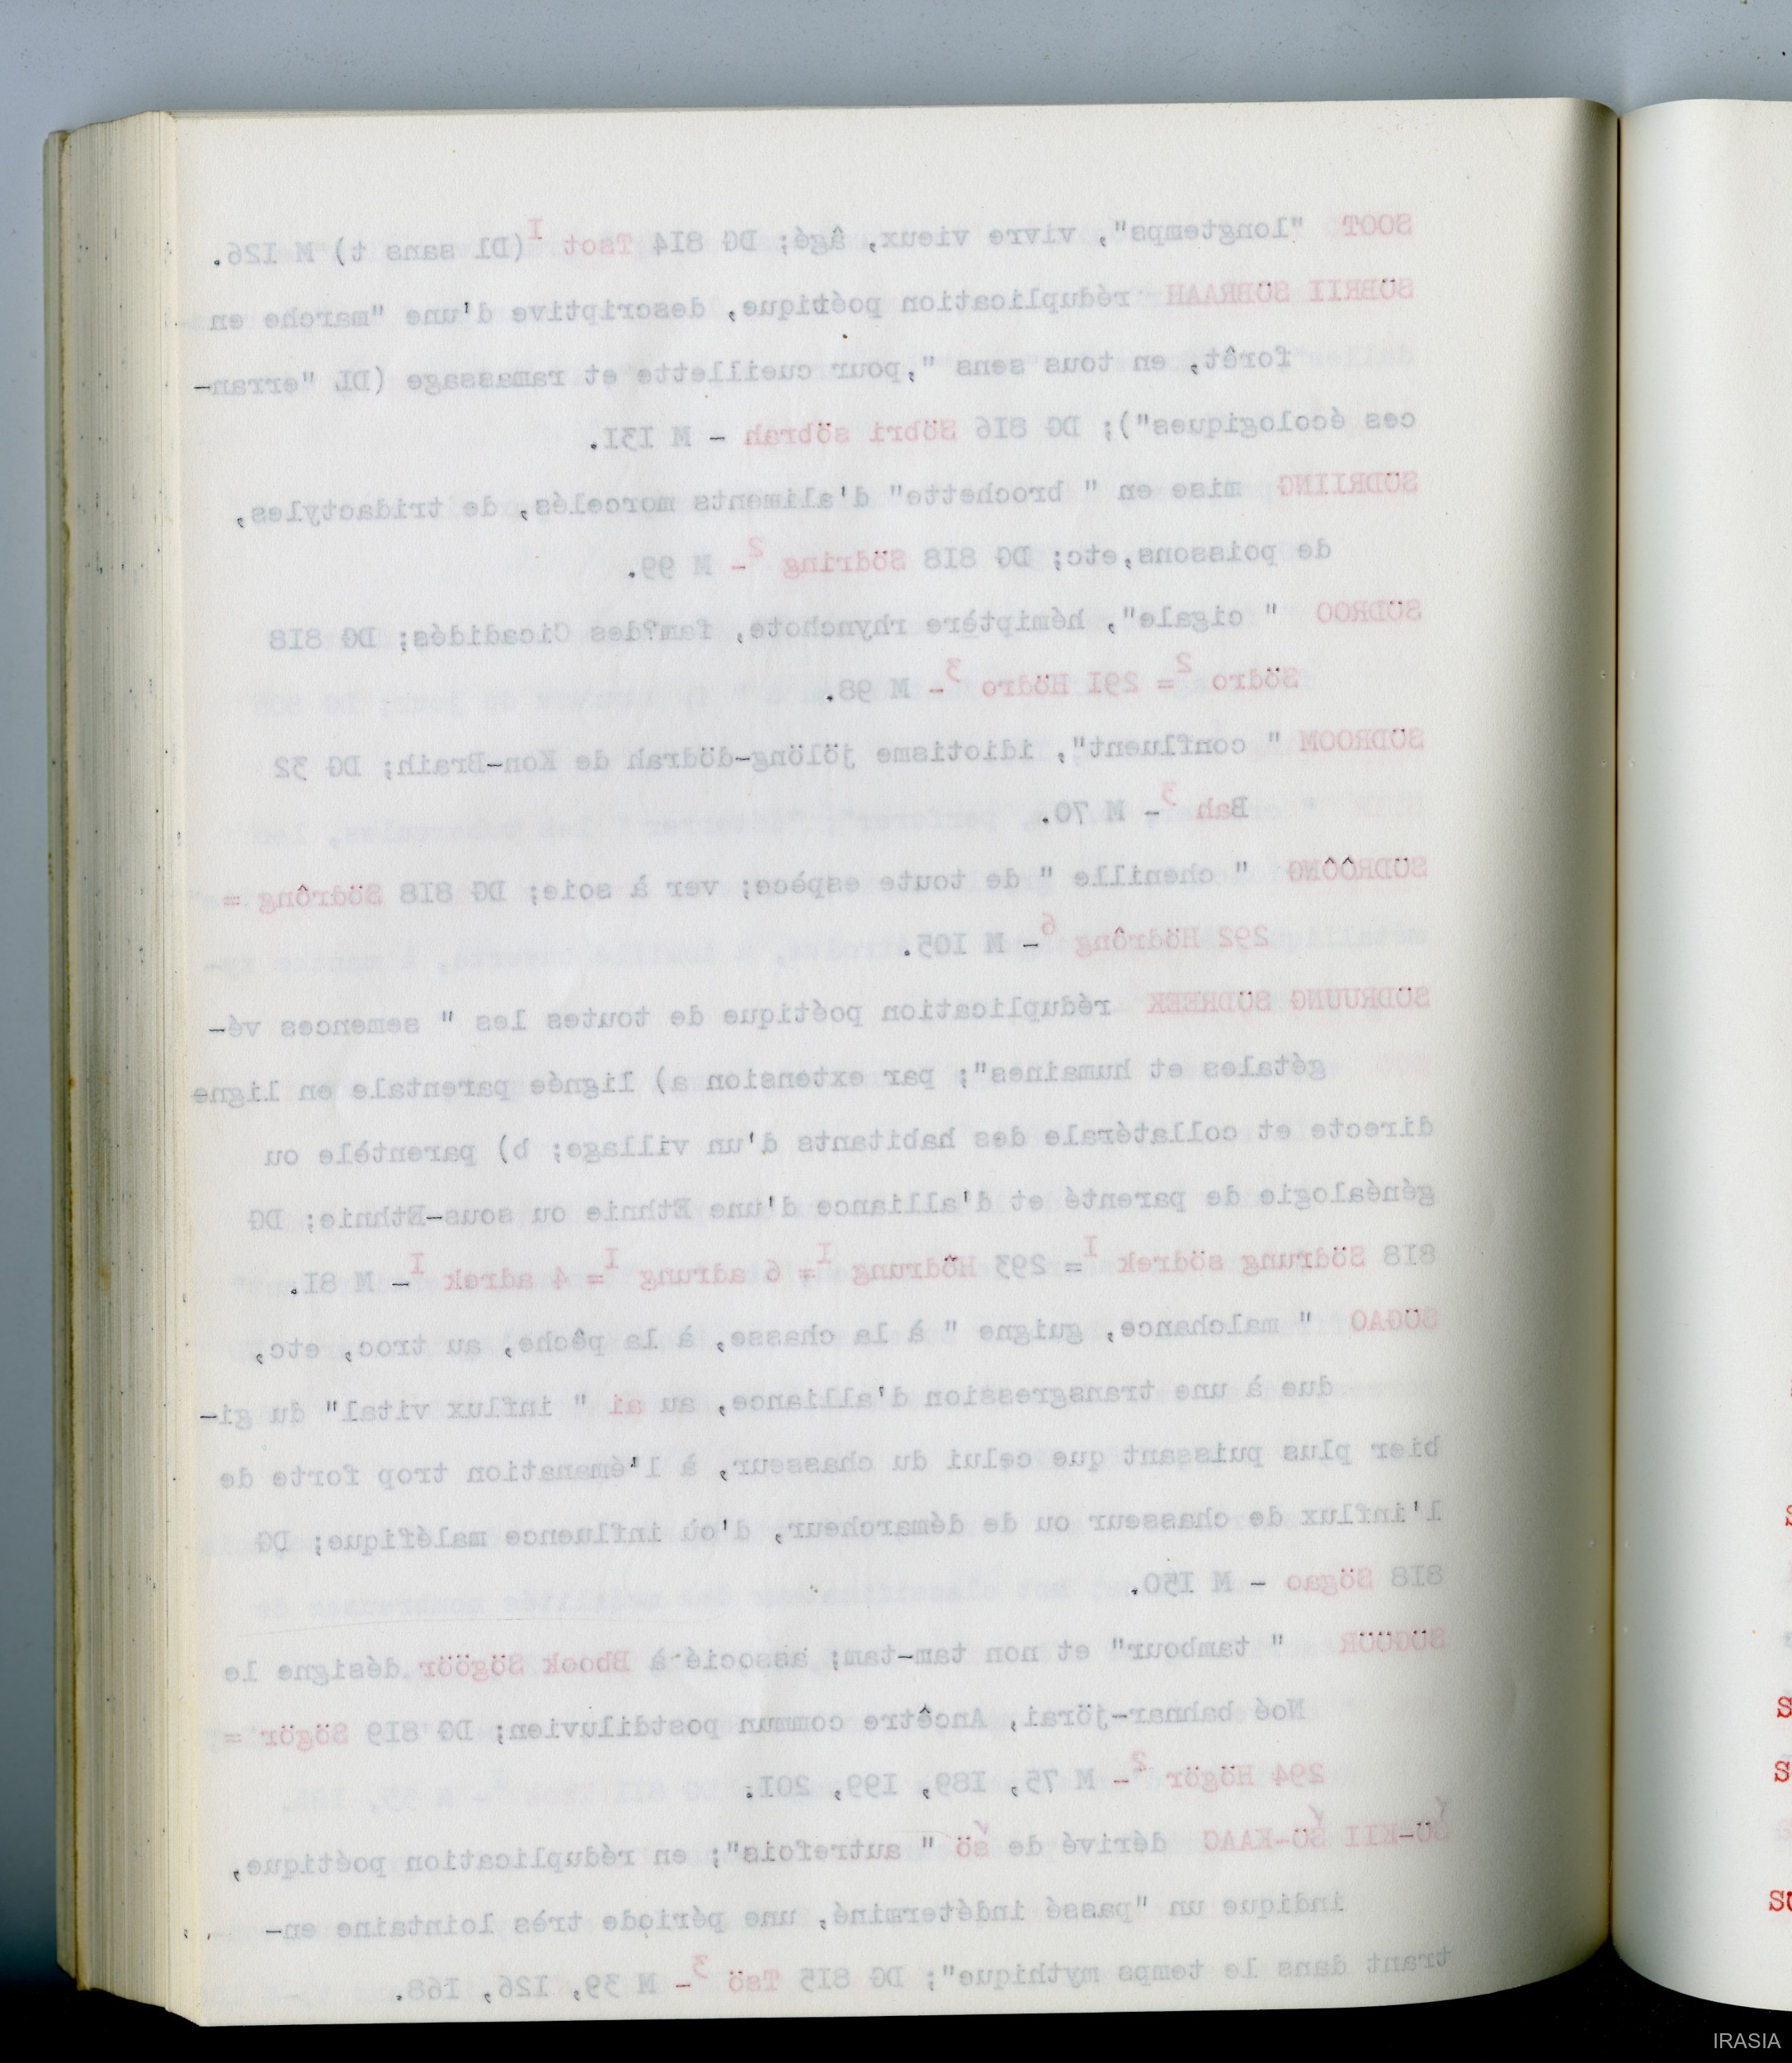 SOOT "longtemps", vivre vieux, âgé; DG 8I4 Tsot I (Dl sans t) M I26.
SÖBRII SÖBRAAH réduplication poétique, descriptive d'une "marche en
forêt, en tous sens ",pour cueillette et ramassage (DL "erran-
ces écologiques"); DG 8I6 Söbri söbrah - M I3I.
SÖDRIING mise en " brochette" d'aliments morcelés, de tridactyles,
de poissons,etc; DG 8I8 Södring 2- M 99.
SÖDROO " cigale", hémiptère rhynchote, fam?des Cicadidés; DG 8I8
Södro 2= 29I Hödro 3- M 98.
SÖDROOM " confluent", idiotisme jölöng-dödrah de Kon-Braih; DG 32
Bah 3- M 70.
SÖDRÔÔNG " chenille " de toute espèce; ver à soie; DG 8I8 Södrông =
292 Hödrông 6- M I05.
SÖDRUUNG SÖDREEK réduplication poétique de toutes les " semences vé-
gétales et humaines"; par extension a) lignée parentale en ligne
directe et collatérale des habitants d'un village; b) parentèle ou
généalogie de parenté et d'alliance d'une Ethnie ou sous-Ethnie; DG
8I8 Södrung södrek I= 293 Hödrung I= 6 adrung I= 4 adrek I- M 8I.
SÖGAO " malchance, guigne " à la chasse, à la pêche, au troc, etc,
due à une transgression d'alliance, au ai " influx vital" du gi-
bier plus puissant que celui du chasseur, à l'émanation trop forte de
l'influx de chasseur ou de démarcheur, d'où influence maléfique; DG
8I8 Sögao - M I50.
SÖGÖÖR " tambour" et non tam-tam; associé à Bbook Sögöör désigne le
Noé bahnar-jörai, Ancêtre commun postdiluvien; DG 8I9 Sögör =
294 Högör 2- M 75, I89, I99, 20I.
SÖ-KII SÖ-KAAG dérivé de sö " autrefois"; en réduplication poétique,
indique un "passé indéterminé, une période très lointaine en-
trant dans le temps mythique"; DG 8I5 Tsö 3- M 39, I26, I68.
S
S
S
SU
IRASIA